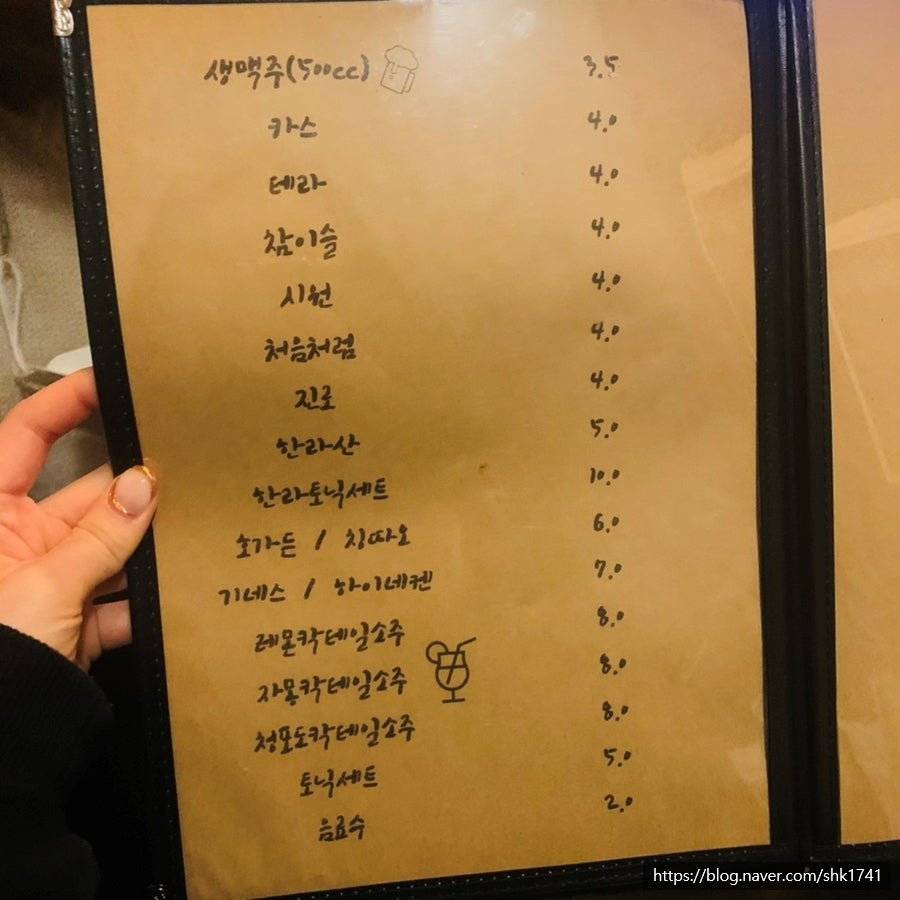 생맥주(500cc) 3.5
카스 4.0
테라 4.0
참이슬 4.0
시원 4.0
처음처럼 4.0
진로 4.0
한라산 5.0
한라토닉세트 10.0
호가든 / 칭따오 6.0
기네스 / 하이네켄 7.0
레몬칵테일소주 8.0
자몽칵테일소주 8.0
청포도칵테일소주 8.0
토닉세트 5.0
음료수 2.0
https://blog.naver.com/shk1741